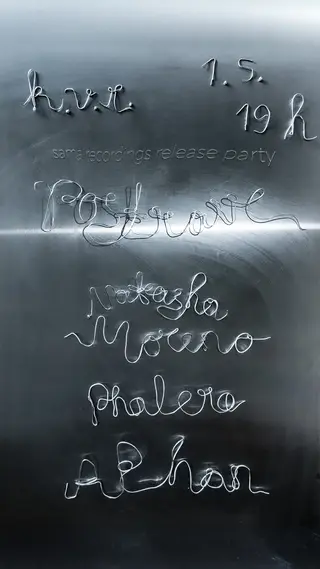 k.v.r. 1.5.
19 h
same recordings release party
Postrave
Natasha
Moreno
Phalera
APhan